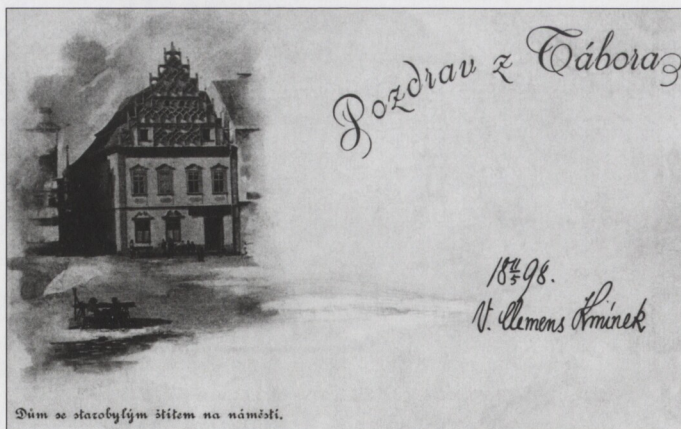 Pozdrav z Tábora
18 11/5 98.
V. Clemens Kmínek
Dům se starobylým štítem na náměstí.